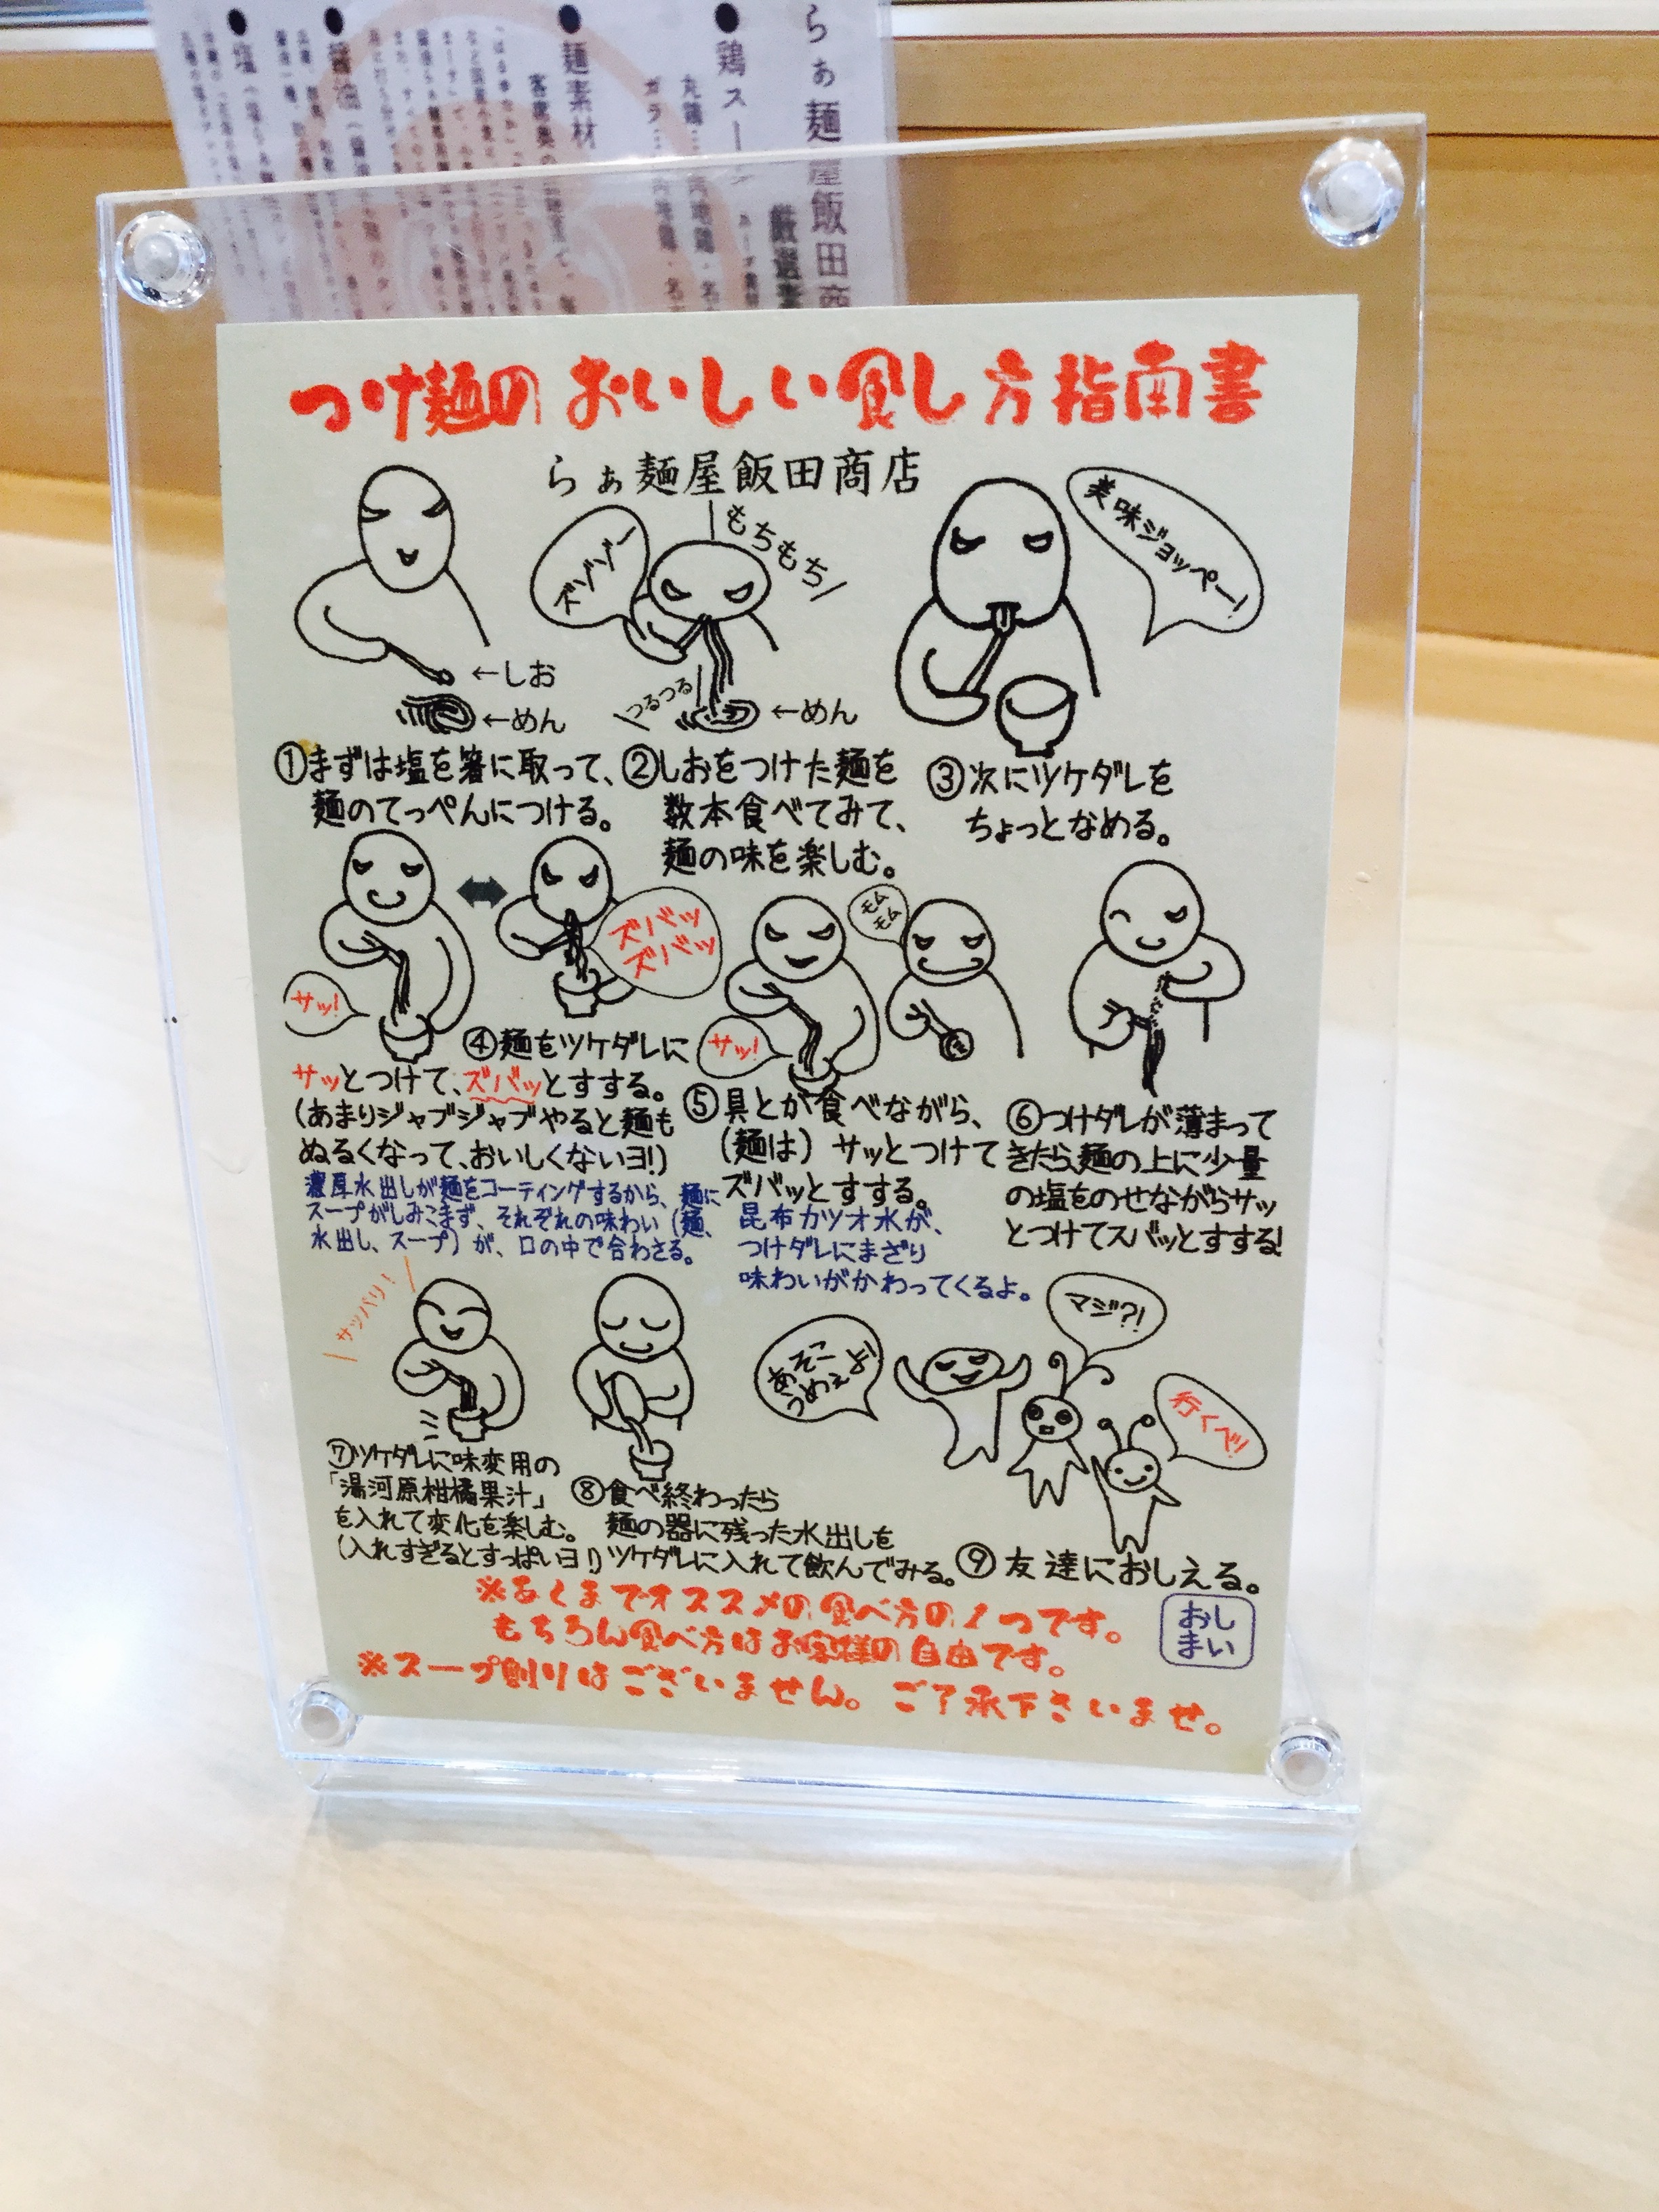 らぁ麺屋飯田商
●鶏ス
●麺素材
つけ麺のおいしい食し方指南書
らぁ麺屋飯田商店
ズゾゾー
もちもち
美味ジョッペー!
←しお
←めん
つるつる
←めん
①まずは塩を箸に取って、
麺のてっぺんにつける。
②しおをつけた麺を
数本食べてみて、
麺の味を楽しむ。
③次にツケダレを
ちょっとなめる。
サッ!
ズバッ
ズバッ
④麺をツケダレに
サッとつけて、ズバッとすする。
(あまりジャブジャブやると麺も
ぬるくなって、おいしくないヨ!)
濃厚水出しが麺をコーティングするから、麺に
スープがしみこまず、それぞれの味わい(麺、
水出し、スープ)が、口の中で合わさる。
サッ!
モム
モム
⑤具とか食べながら、
(麺は)サッとつけて
ズバッとすする。
昆布カツオ水が、
つけダレにまざり
味わいがかわってくるよ。
⑥つけダレが薄まって
きたら、麺の上に少量
の塩をのせながらサッ
とつけてズバッとすする!
サッパリ!
⑦ツケダレに味変用の
「湯河原柑橘果汁」
を入れて変化を楽しむ。
(入れすぎるとすっぱいヨ!)
⑧食べ終わったら
麺の器に残った水出しを
ツケダレに入れて飲んでみる。
あそこ
うめぇよ!
マジ?!
行くべ!!
⑨友達におしえる。
※あくまでオススメの食べ方の1つです。
もちろん食べ方はお客様の自由です。
※スープ割りはございません。ご了承下さいませ。
おし
まい